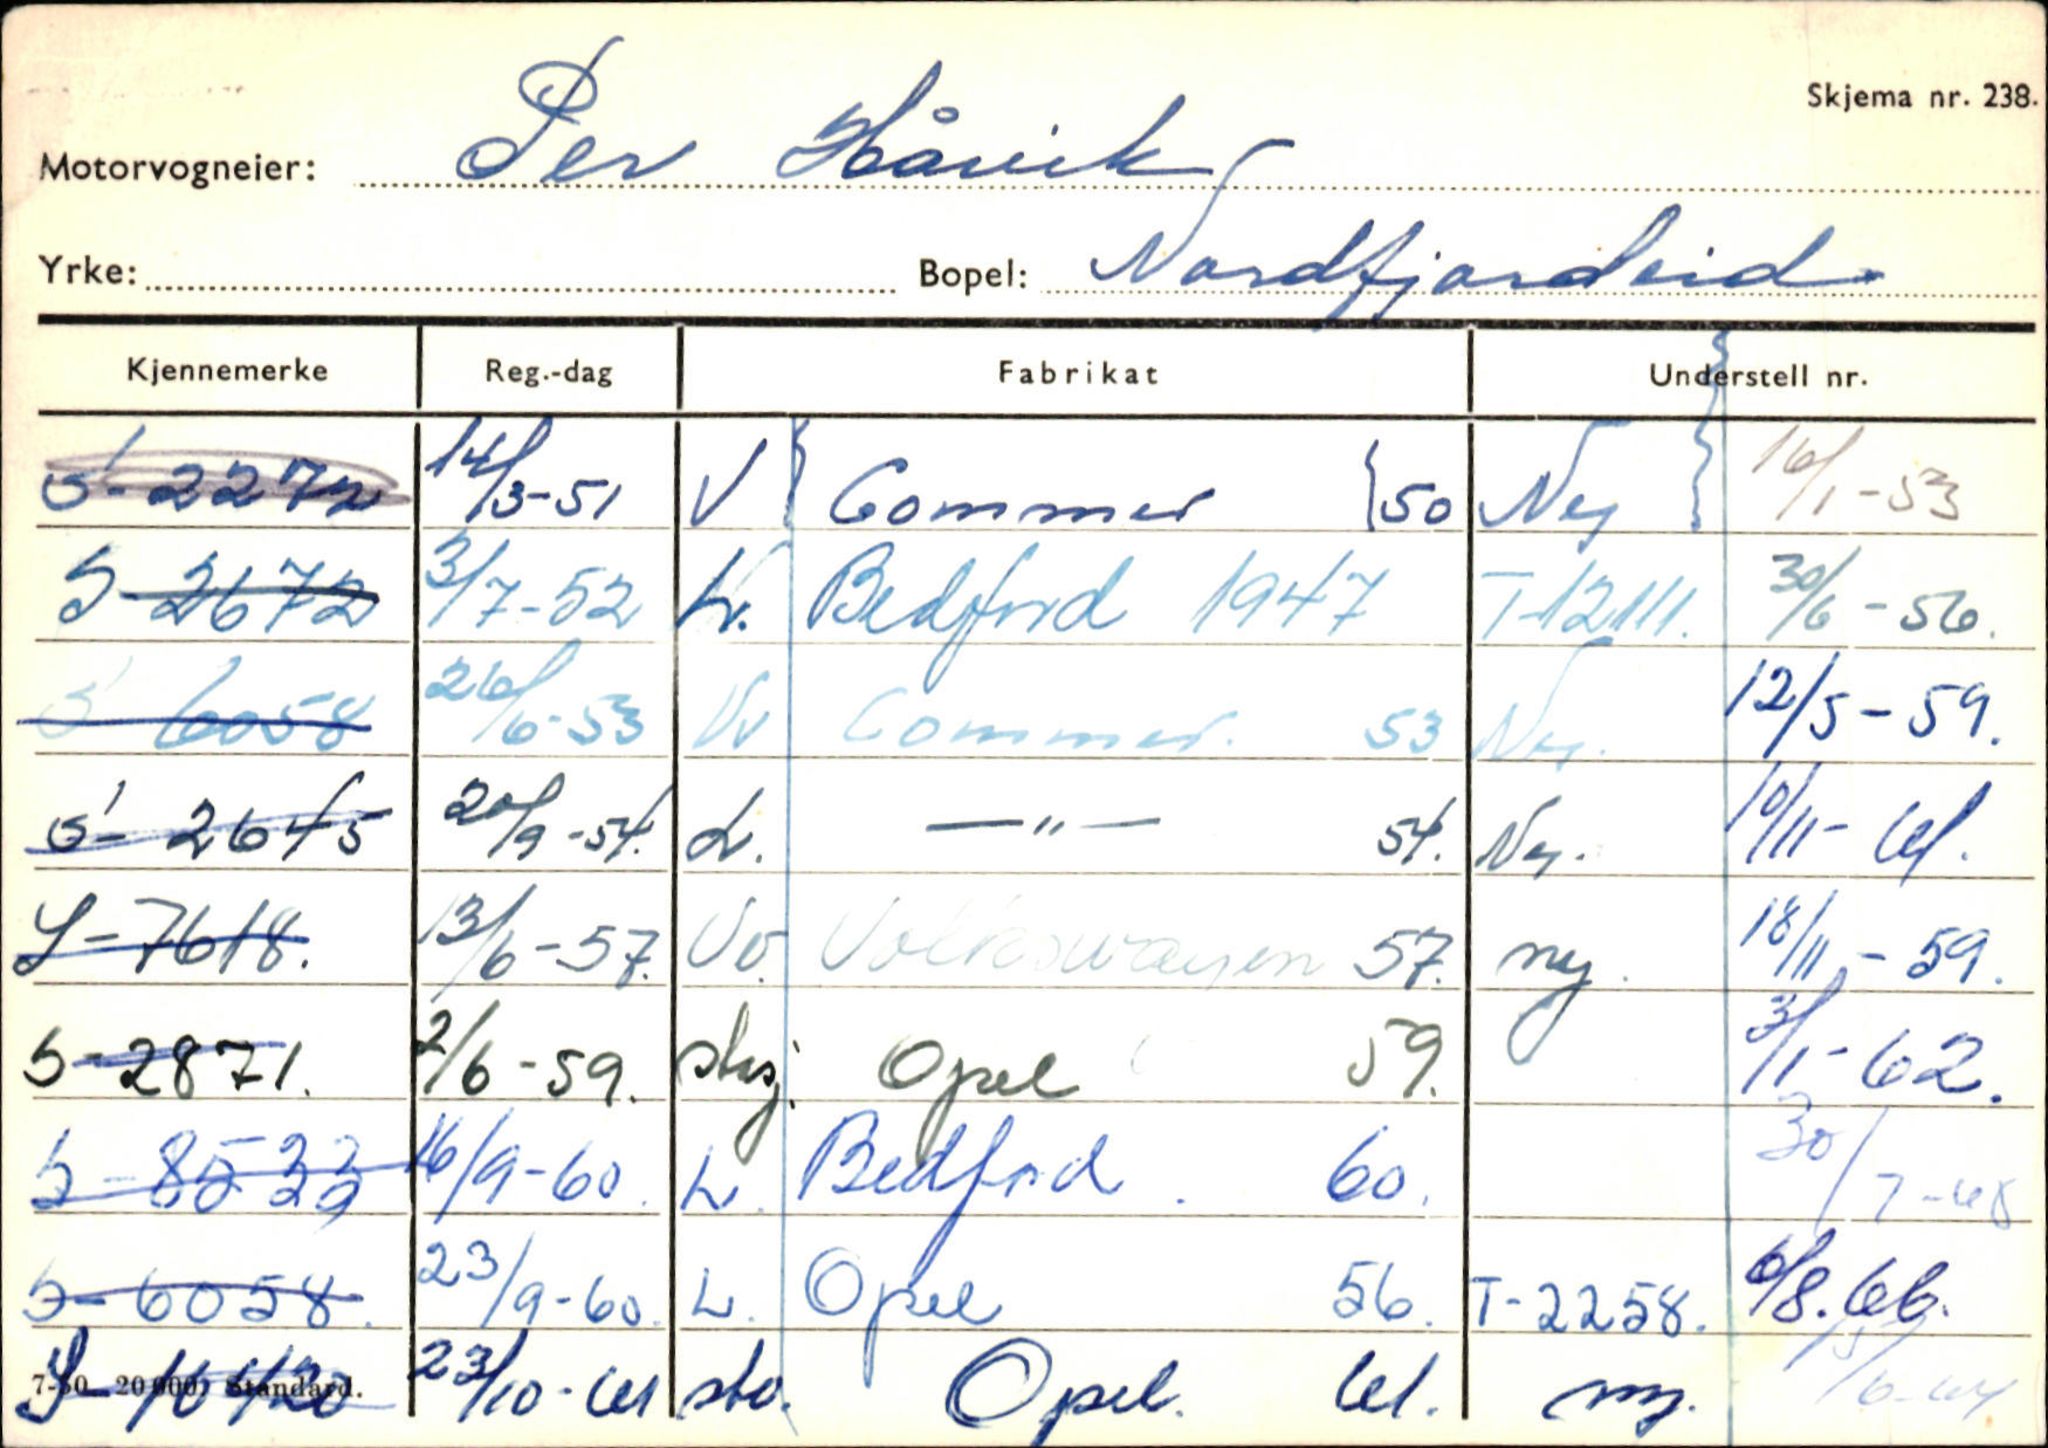 Skjema nr. 238.
Motorvogneier: Per Håvik
Yrke: Bopel: Nordfjordeid
Kjennemerke Reg.-dag Fabrikat Understell nr.
S-2272 14/3-51 V Commer 50 Ny 16/1-53
S-2672 3/7-52 L. Bedford 1947 T-12111. 30/6-56.
S-6058 26/6-53 Vv Commer. 53 Ny. 12/5-59.
S-2645 20/9-54. L. —"— 54. Ny. 10/11-61.
S-7618. 13/6-57. Vv. Volkswagen 57. ny. 18/11-59.
S-2871. 2/6-59. Opel 59. 3/1-62.
S-8533 16/9-60. L. Bedford. 60. 30/7-68
S-6058. 23/9-60. L. Opel 56. T-2258. 6/8.66.
S-10120 23/10-61 stv. Opel. 61. ny. 15/6-64
7-50. 20 000. Standard.